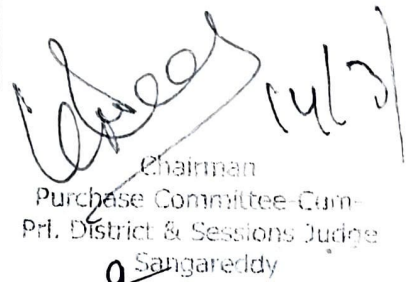 14/3/
Chairman
Purchase Committee-Cum-
Prl. District & Sessions Judge
Sangareddy